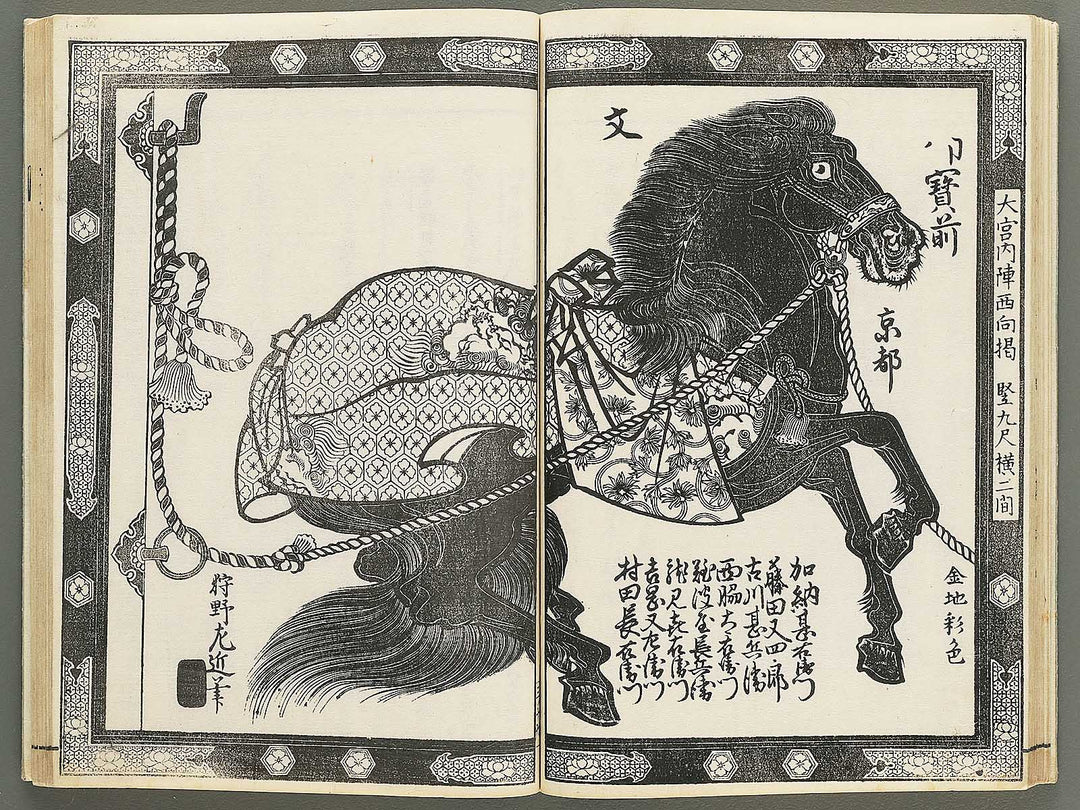 大宮内陣西向掲 竪九尺横二間
寳前
京都
金地彩色
文
加納甚右衛門
藤田又四郎
古川甚兵衛
西脇太右衛門
難波屋長兵衛
吉田又左衛門
村田長右衛門
狩野左近筆